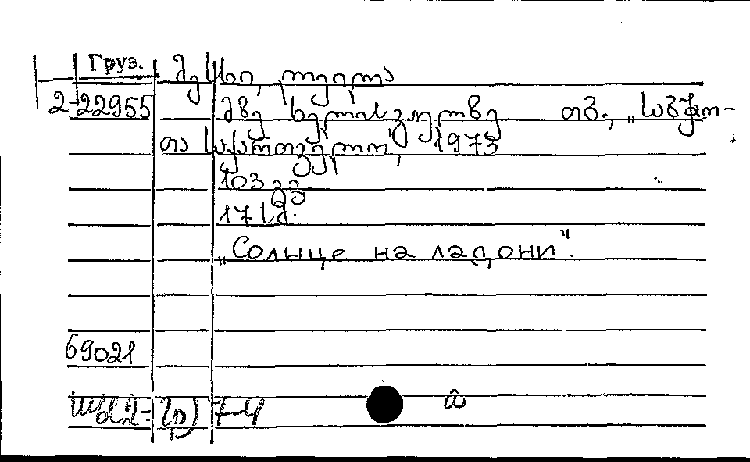 Груз.
2-22955 მზე ხელისგულზე თბ., „საბჭო-
თა საქართველო“, 1973
103 გვ
17 სმ.
„Солнце на ладони“.
69021
7-4